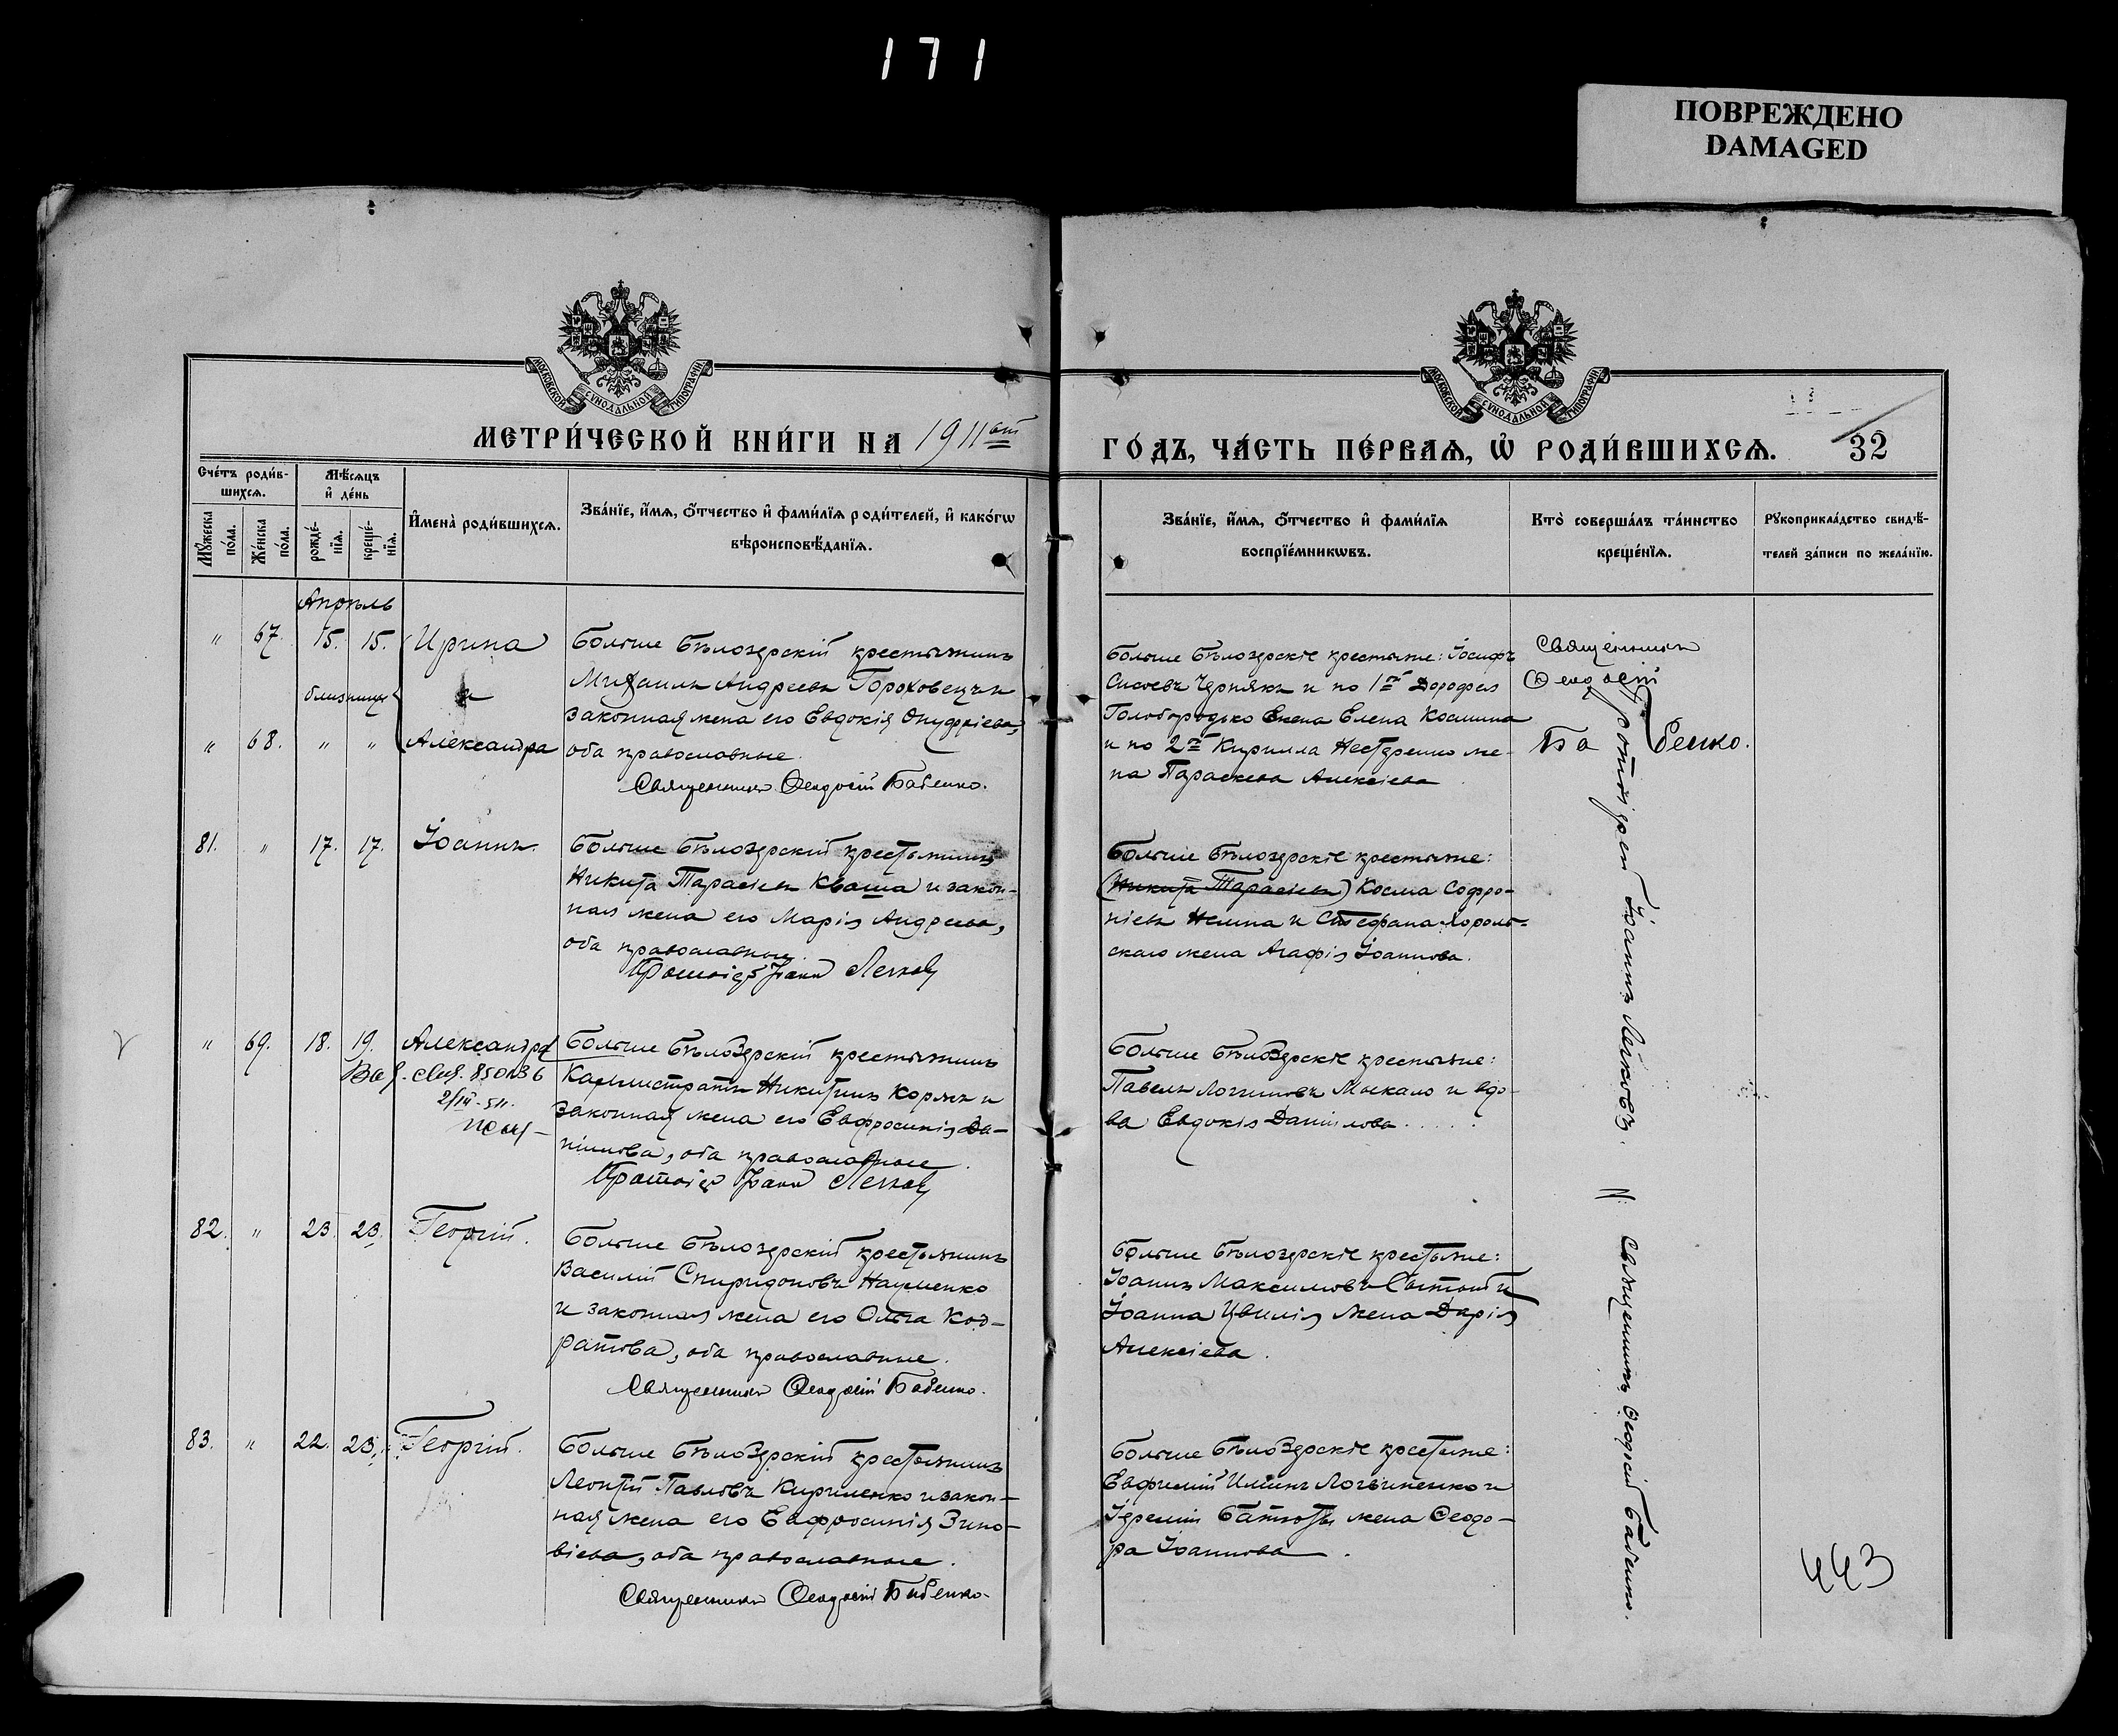 171
ПОВРЕЖДЕНО
DAMAGED
МОСКОВСКОЙ СУНОДАЛЬНОЙ ТИПОГРАФІИ
МОСКОВСКОЙ СУНОДАЛЬНОЙ ТИПОГРАФІИ
МЕТРИ́ЧЕСКОЙ КНИ́ГИ НА 1911 ый
ГО́ДЪ, ЧА́СТЬ ПЕ́РВАѦ, Ѡ РОДИ́ВШИХСѦ. 32
Сче́тъ роди́в-
шихсѧ.
Мѣ́сѧцъ
и҆ де́нь
Мꙋ́жеска
по́ла.
Же́нска
по́ла.
рожде́-
нїѧ.
креще́-
нїѧ.
И҆мена̀ роди́вшихсѧ.
Зва́нїе, и҆́мѧ, ѻ҆́тчество и҆ фами́лїѧ роди́телей, и҆ како́гѡ
вѣроисповѣ́данїѧ.
Зва́нїе, и҆́мѧ, ѻ҆́тчество и҆ фами́лїѧ
воспрїе́мникѡвъ.
Кто̀ соверша́лъ та́инство
креще́нїѧ.
Рꙋкоприкла́дство свидѣ́-
телей за́писи по жела́нїю.
Апрѣль
" 67. 15. 15. Ирина
близницы и
" 68. " " Александра
Больше Бѣлозерскій крестьянинъ
Михаилъ Андреевъ Гороховецъ и
законная жена его Евдокія Онуфріева,
оба православные.
Священникъ Ѳеодосій Бабенко.
Больше Бѣлозерскіе крестьяне: Іосифъ
Сисоевъ Чернякъ и по 1й Дорофея
Голобородько жена Елена Космина
и по 2й Кирилла Нестеренко же-
на Параскева Алексіева
Священникъ
Ѳеодосій
Бабенко.
81. " 17. 17. Іоаннъ.
Больше Бѣлозерскій крестьянинъ
Никита Тарасіевъ Кваша и закон-
ная жена его Марія Андреева,
оба православные.
Протоіер Іоанн Легковъ
Больше Бѣлозерскіе крестьяне:
(Никита Тарасіевъ) Косма Софро-
ніевъ Нешпа и Стефана Хороль-
скаго жена Агафія Іоаннова.
Протоіерей Іоаннъ Легковъ.
" 69. 18. 19. Александра
850136
Больше Бѣлозерскій крестьянинъ
Каллистратъ Никитинъ Коржъ и
законная жена его Евфросинія Да-
ніилова, оба православные.
Протоіер Іоанн Легковъ
Больше Бѣлозерскіе крестьяне:
Павелъ Логиновъ Москало и вдо-
ва Евдокія Даніилова.....
82. " 23. 23. Георгій.
Больше Бѣлозерскій крестьянинъ
Василій Спиридоновъ Науменко
и законная жена его Ольга Код-
ратова, оба православные.
Священникъ Ѳеодосій Бабенко.
Больше Бѣлозерскіе крестьяне:
Іоаннъ Максимовъ Сытый и
Іоанна Цвилія жена Дарія
Алексіева.
И Священникъ Ѳеодосій Бабенко.
83. " 22. 23. Георгій.
Больше Бѣлозерскій крестьянинъ
Леонтій Павловъ Кириленко и закон-
ная жена его Евфросинія Зино-
віева, оба православные.
Священникъ Ѳеодосій Бабенко.
Больше Бѣлозерскіе крестьяне:
Евфимій Ильинъ Логвиненко и
Іереміи жена Ѳеодо-
ра Іоаннова.
443